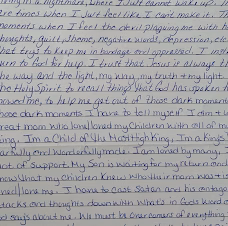 living in a nightmare, where I just cannot wake up. I
are times when I just feel like I can't make it. Th
moments when I feel the devil plaguing me with
thoughts, guilt, shame, negative words, depression, etc
that trys to keep me in bondage and oppressed. I must
turn to God for help. I trust that Jesus is always th
the way and the light, my way, my truth & my light
the Holy Spirit to recall things that God has spoken t
showed me, to help me get out of those dark moments
those dark moments I have to tell myself I am a
great mom who loved my children with all of m
I'm a Child of the Most High King. I'm a Kings
fearfully and wonderfully made. I am loved by many,
lot of support. My son is waiting for my return and
know what my children knew who their mom was
loved me. I have to cast Satan and his
attacks and thoughts down with what's in Gods Word
God says about me. We must be Overcomers of everything